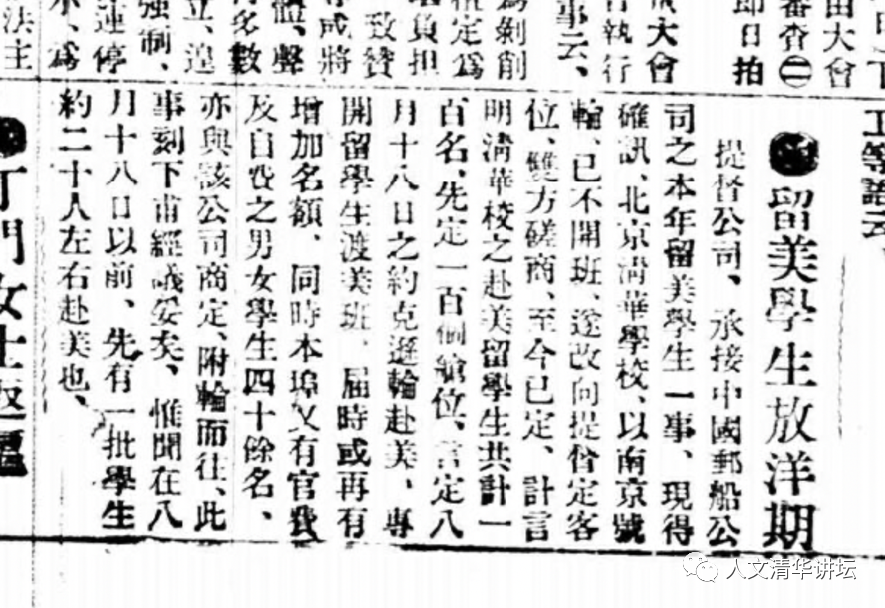 大會
審查㊁
即日拍
大會
執行
事云、
為剝削
定為
負担
致贊
成將
體、聲
多數
立、遑
強制、
連停
為
法主
工等語云
●留美學生放洋期
提督公司、承接中國郵船公
司之本年留美學生一事、現得
確訊、北京清華學校、以南京號
輪、已不開班、遂改向提督定客
位、雙方磋商、至今已定、計言
明清華校之赴美留學生共計一
百名、先定一百個艙位、言定八
月十八日之約克遜輪赴美、專
開留學生渡美班、屆時或再有
增加名額、同時本埠又有官費
及自費之男女學生四十餘名、
亦與該公司商定、附輪而往、此
事刻下甫經議妥矣、惟聞在八
月十八日以前、先有一批學生
約二十人左右赴美也、
●丁門女士返
人文清华讲坛